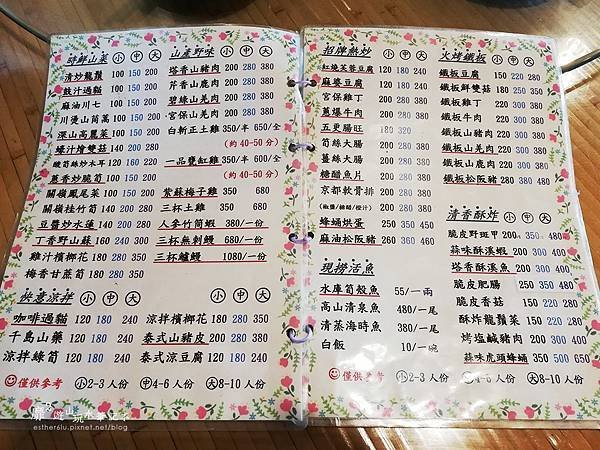 時鮮山菜 小 中 大
清炒龍鬚 100 150 200
豉汁過貓 100 150 200
麻油川七 100 150 200
川燙山茼萵 100 150 200
深山高麗菜 100 150 200
蠔汁燴雙菇 140 200 280
酸筍絲炒木耳 120 160 220
蔥香炒脆筍 100 150 200
關嶺鳳尾菜 100 150 200
關嶺桂竹筍 140 200 280
豆醬炒水蓮 140 200 280
丁香野山蘇 160 240 300
雞汁檳榔花 180 280 350
梅香甘蔗筍 180 280 350
快意涼拌 小 中 大
咖啡過貓 120 180 240
千島山藥 120 180 240
涼拌綠筍 120 180 240
山產野味 小 中 大
塔香山豬肉 200 280 380
芹香山鹿肉 200 280 380
碧綠山羌肉 200 280 380
宮保山羌肉 200 280 380
白斬正土雞 350/半 650/全
(約 40-50 分)
一品甕缸雞 350/半 650/全
(約 40-50 分)
紫蘇梅子雞 350 680
三杯土雞 350 680
人參竹筒蝦 380/一份
三杯無刺鰻 680/一份
三杯鱸鰻 1080/一份
涼拌檳榔花 180 280 350
泰式山豬皮 200 280 380
泰式涼豆腐 120 180 240
僅供參考 小2-3 人份 中4-6 人份 大8-10 人份
招牌熱炒 小 中 大
紅燒芙蓉豆腐 120 180 240
麻婆豆腐 120 180 240
宮保雞丁 200 280 380
蔥爆牛肉 200 280 380
五更腸旺 180 320
筍絲大腸 200 280 380
薑絲大腸 200 280 380
糖醋魚片 200 280 380
京都軟骨排 200 280 380
(椒鹽/糖醋/橙汁)
蜂蛹烘蛋 200 250 300
麻油松阪豬 260 360 460
現撈活魚
水庫筍殼魚 55/一兩
高山清泉魚 480/一尾
清蒸海時魚 380/一尾
白飯 10/一碗
火烤鐵板 小 中 大
鐵板豆腐 150 220 280
鐵板鮮雙菇 150 220 280
鐵板雞丁 220 300 400
鐵板牛肉 220 300 400
鐵板山豬肉 220 300 400
鐵板山羌肉 220 300 400
鐵板山鹿肉 220 300 400
鐵板松阪豬 280 380 480
清香酥炸 小 中 大
脆皮野斑甲 200 350 480
蒜味酥溪蝦 200 300 400
塔香酥溪魚 200 300 400
脆皮肥腸 200 300 400
脆皮香菇 150 220 280
酥炸龍鬚菜 150 220 280
烤塩鹹豬肉 200 300 400
蒜味虎頭蜂蛹 350 500 650
僅供參考 小2-3 人份 中4-6 人份 大8-10 人份
esther61u.pixnet.net/blog